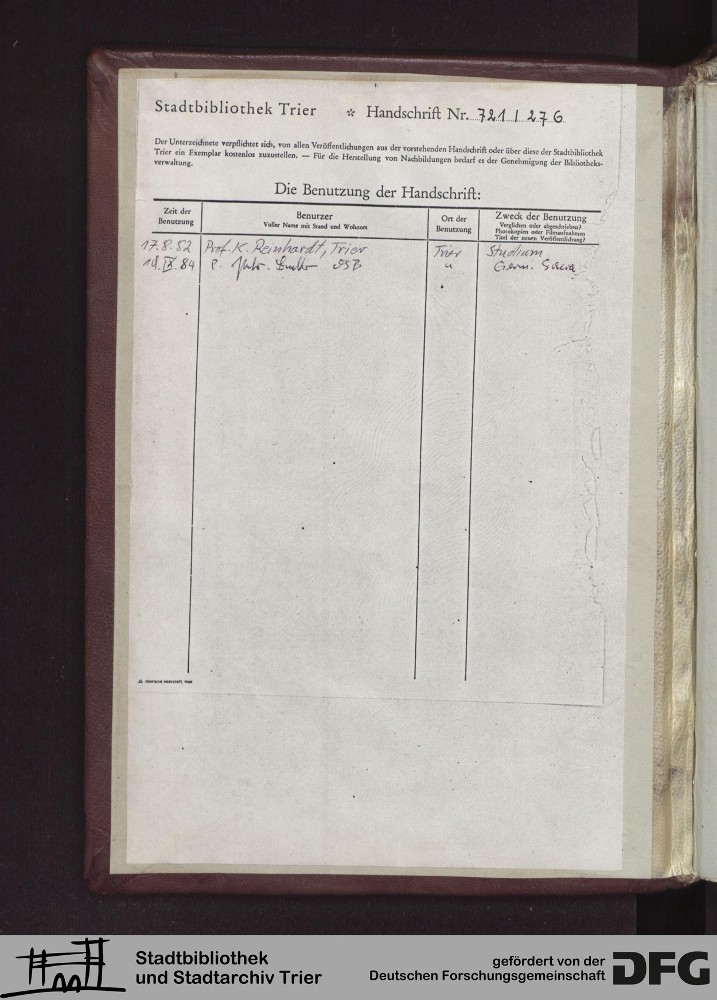 Stadtbibliothek Trier * Handschrift Nr. 721 / 276
Der Unterzeichnete verpflichtet sich, von allen Veröffentlichungen aus der vorstehenden Handschrift oder über diese der Stadtbibliothek
Trier ein Exemplar kostenlos zuzustellen. — Für die Herstellung von Nachbildungen bedarf es der Genehmigung der Bibliotheks-
verwaltung.
Die Benutzung der Handschrift:
Zeit der
Benutzung
Benutzer
Voller Name mit Stand und Wohnort
Ort der
Benutzung
Zweck der Benutzung
Verglichen oder abgeschrieben?
Photokopien oder Filmaufnahmen
Titel der neuen Veröffentlichung?
17.8.82 Prof. K. Reinhardt, Trier Trier Studium
IX. 84 P. OSB " Germ. Sacra
Stadtbibliothek
und Stadtarchiv Trier
gefördert von der
Deutschen Forschungsgemeinschaft
DFG